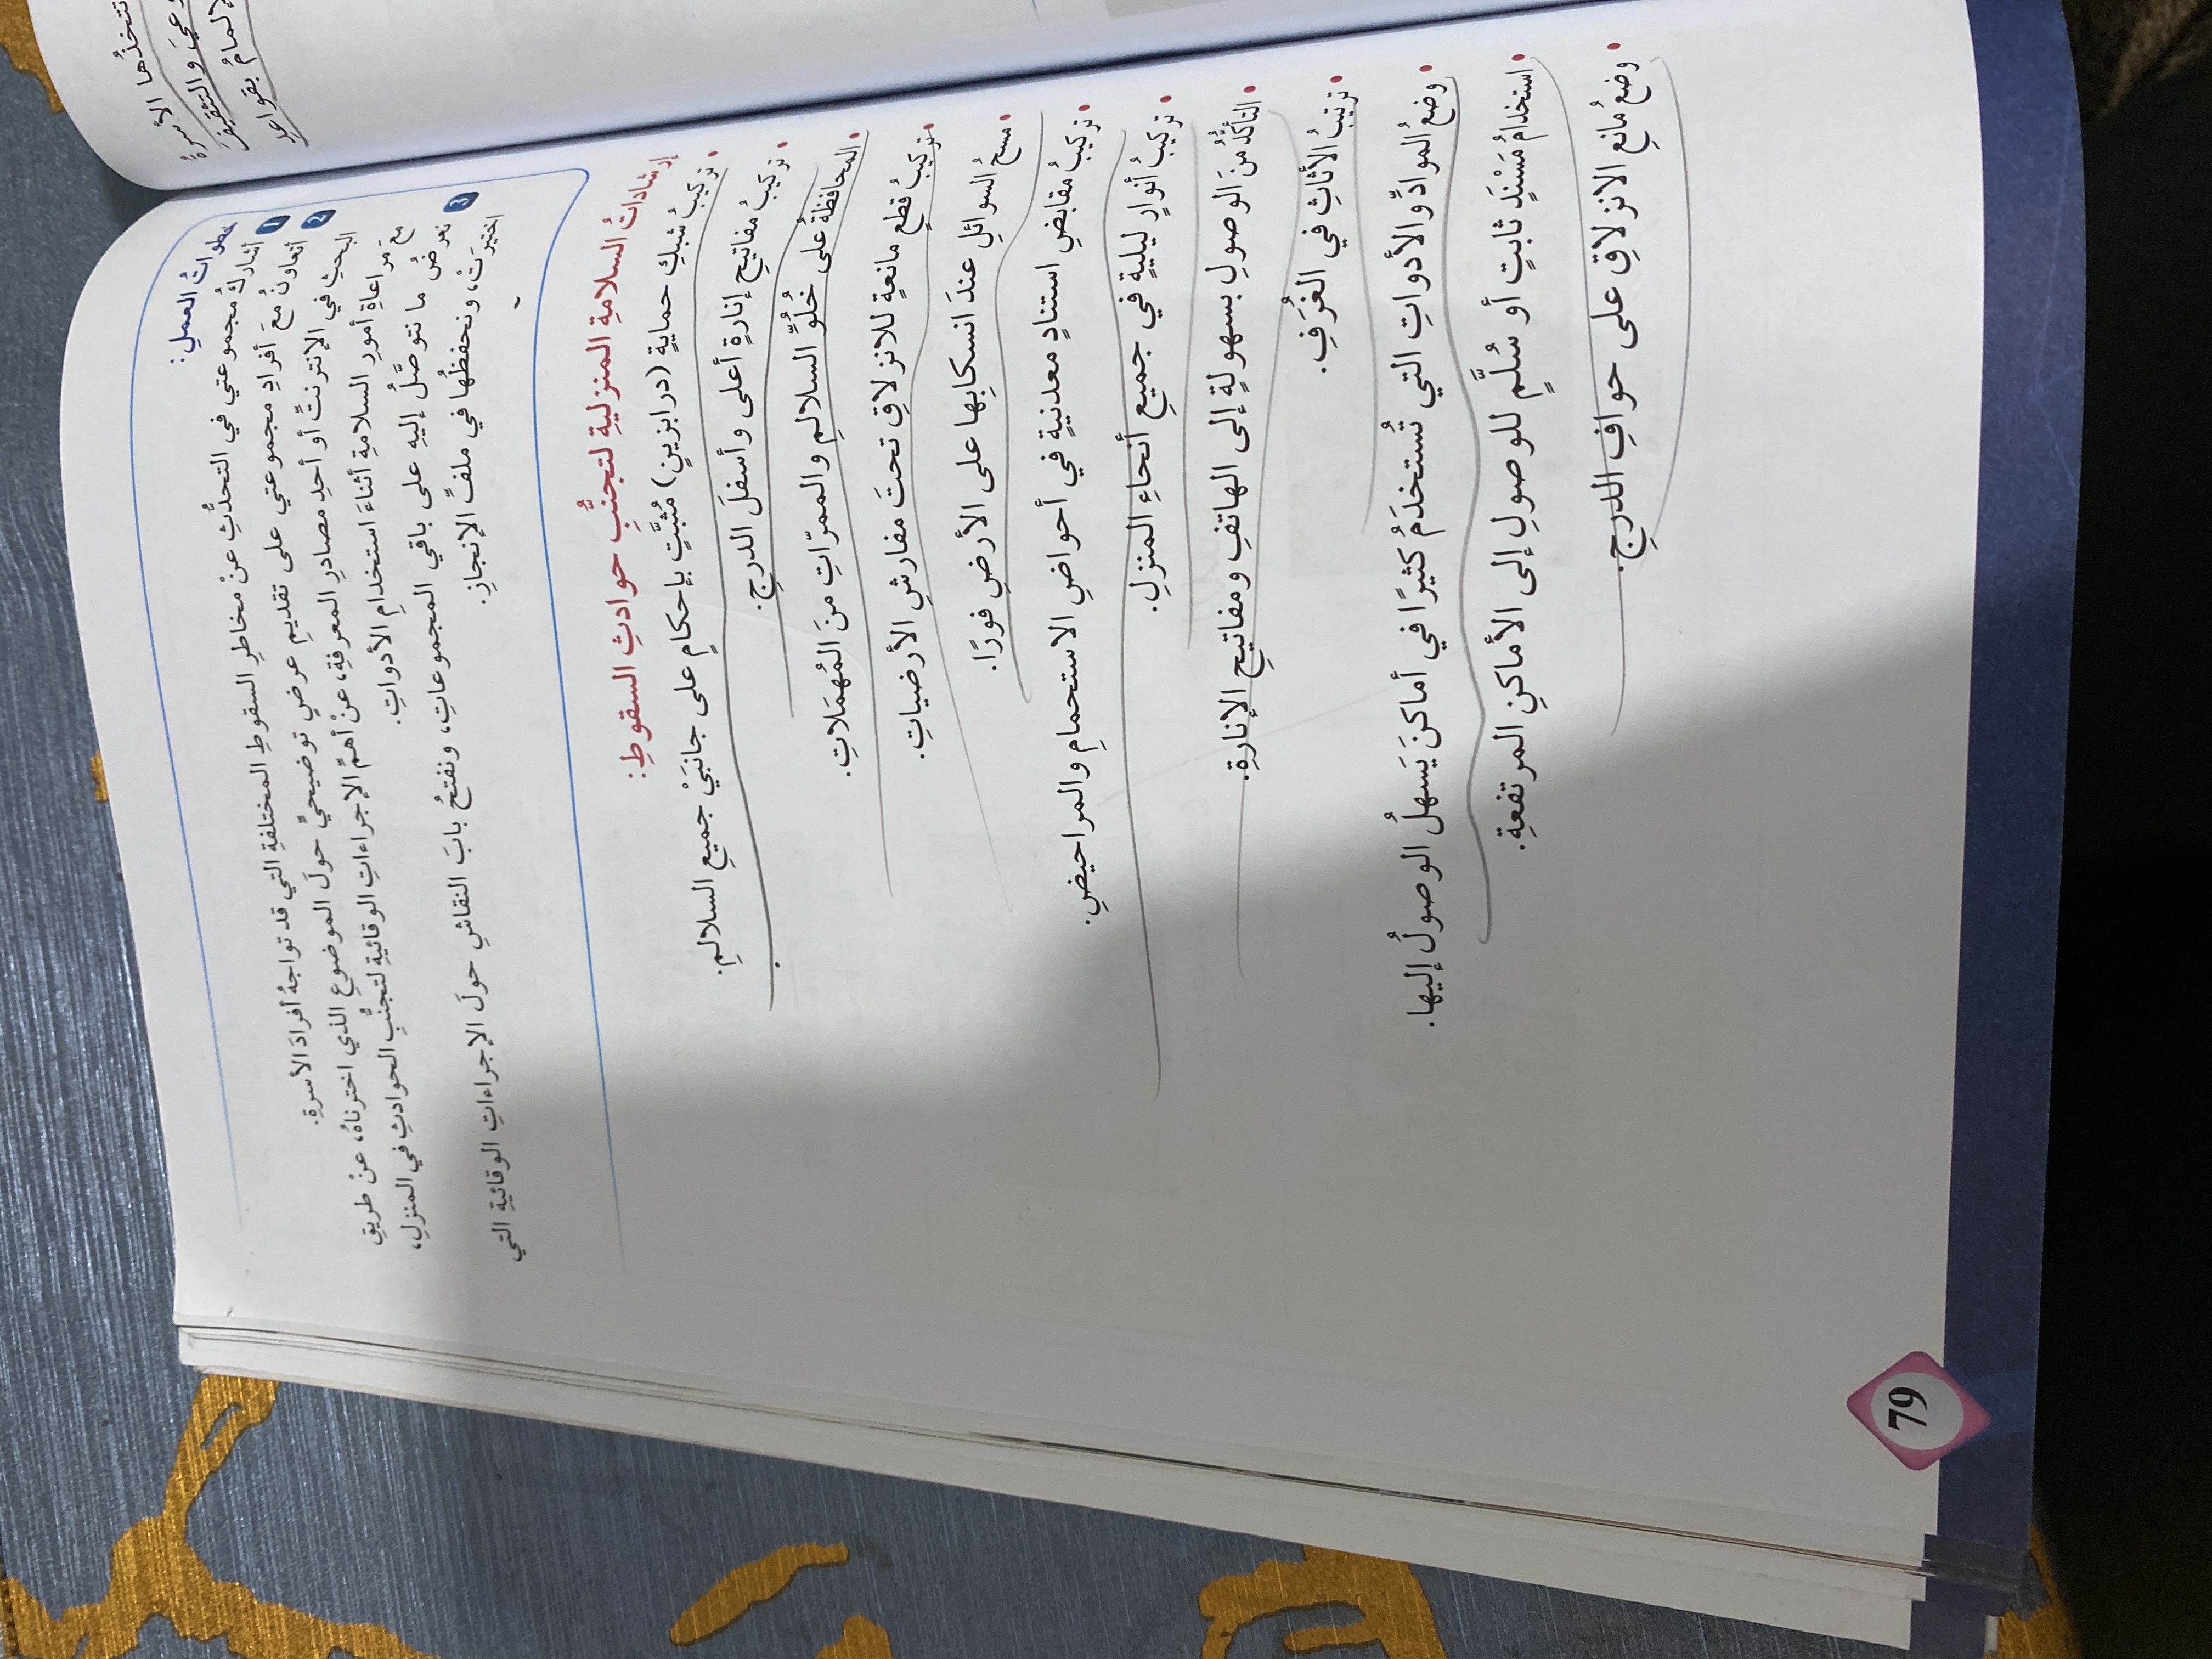 تتخذُها الأسرةُ
وعيَ والتثقيفَ
الإلمامُ بقواعدِ
خطواتُ العملِ:
1 أشاركُ مجموعتي في التحدُّثِ عنْ مخاطرِ السقوطِ المختلفةِ التي قد تواجهُ أفرادَ الأسرةِ.
2 أتعاونُ معَ أفرادِ مجموعتي على تقديمِ عرضٍ توضيحيٍّ حولَ الموضوعِ الذي اخترناهُ، عنْ طريقِ
البحثِ في الإنترنتِّ أو أحدِ مصادرِ المعرفةِ، عنْ أهمِّ الإجراءاتِ الوقائيةِ لتجنُّبِ الحوادثِ في المنزلِ،
معَ مراعاةِ أمورِ السلامةِ أثناءَ استخدامِ الأدواتِ.
3 نعرضُ ما نتوصَّلُ إليهِ على باقي المجموعاتِ، ونفتحُ بابَ النقاشِ حولَ الإجراءاتِ الوقائيةِ التي
اختيرَتْ، ونحفظُها في ملفِّ الإنجازِ.
إرشاداتُ السلامةِ المنزليةِ لتجنُّبِ حوادثِ السقوطِ:
• تركيبُ شبكِ حمايةٍ (درابزينٍ) مُثبَّتٍ بإحكامٍ على جانبَيْ جميعِ السلالمِ.
• تركيبُ مفاتيحِ إنارةٍ أعلى وأسفلَ الدرجِ.
• المحافظةُ على خُلُوِّ السلالمِ والممرّاتِ منَ المُهمَلاتِ.
• تركيبُ قطعٍ مانعةٍ للانزلاقِ تحتَ مفارشِ الأرضياتِ.
• مسحُ السوائلِ عندَ انسكابِها على الأرضِ فورًا.
• تركيبُ مقابضِ استنادٍ معدنيةٍ في أحواضِ الاستحمامِ والمراحيضِ.
• تركيبُ أنوارٍ ليليةٍ في جميعِ أنحاءِ المنزلِ.
• التأكُّدُ منَ الوصولِ بسهولةٍ إلى الهاتفِ ومفاتيحِ الإنارةِ.
• ترتيبُ الأثاثِ في الغُرَفِ.
• وضعُ الموادِّ والأدواتِ التي تُستخدَمُ كثيرًا في أماكنَ يَسهلُ الوصولُ إليها.
• استخدامُ مَسْنَدٍ ثابتٍ أو سُلَّمٍ للوصولِ إلى الأماكنِ المرتفعةِ.
• وضعُ مانعِ الانزلاقِ على حوافِ الدرجِ.
79